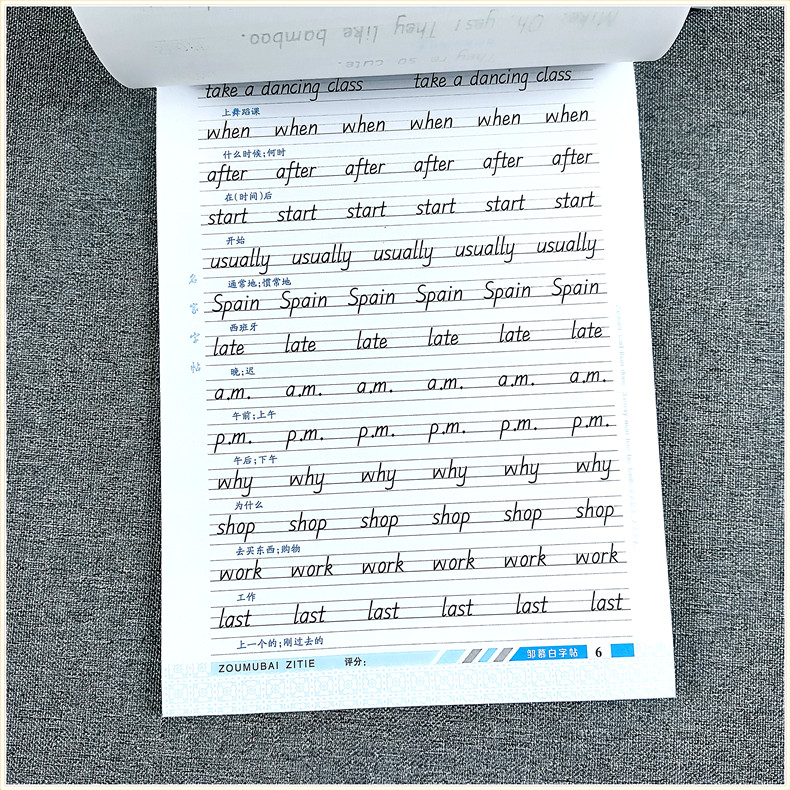 Mike. Oh, yes! They like bamboo.
They're so cute.
take a dancing class take a dancing class
上舞蹈课
when when when when when when
什么时候;何时
after after after after after after
在(时间)后
start start start start start start
开始
usually usually usually usually usually
通常地;惯常地
Spain Spain Spain Spain Spain Spain
西班牙
late late late late late late
晚;迟
a.m. a.m. a.m. a.m. a.m. a.m.
午前;上午
p.m. p.m. p.m. p.m. p.m. p.m.
午后;下午
why why why why why why
为什么
shop shop shop shop shop shop
去买东西;购物
work work work work work work
工作
last last last last last last
上一个的;刚过去的
名家字帖
ZOUMUBAI ZITIE 评分: 邹慕白字帖 6